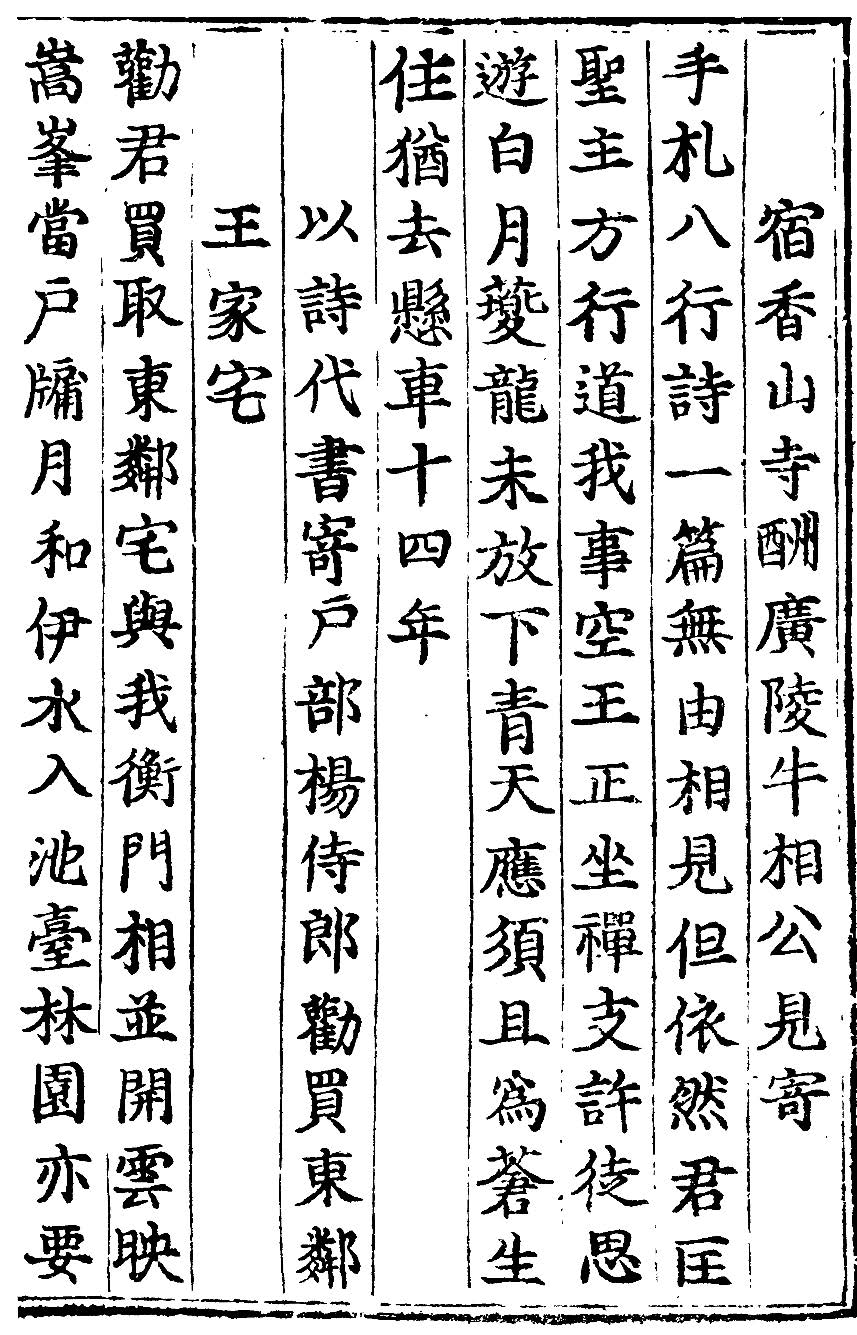 宿香山寺酬廣陵牛相公見寄
手札八行詩一篇無由相見但依然君匡
聖主方行道我事空王正坐禪支許徒思
遊白月夔龍未放下青天應須且爲蒼生
住猶去懸車十四年
以詩代書寄戶部楊侍郎勸買東鄰
王家宅
勸君買取東鄰宅與我衡門相並開雲映
嵩峯當戶牖月和伊水入池臺林園亦要